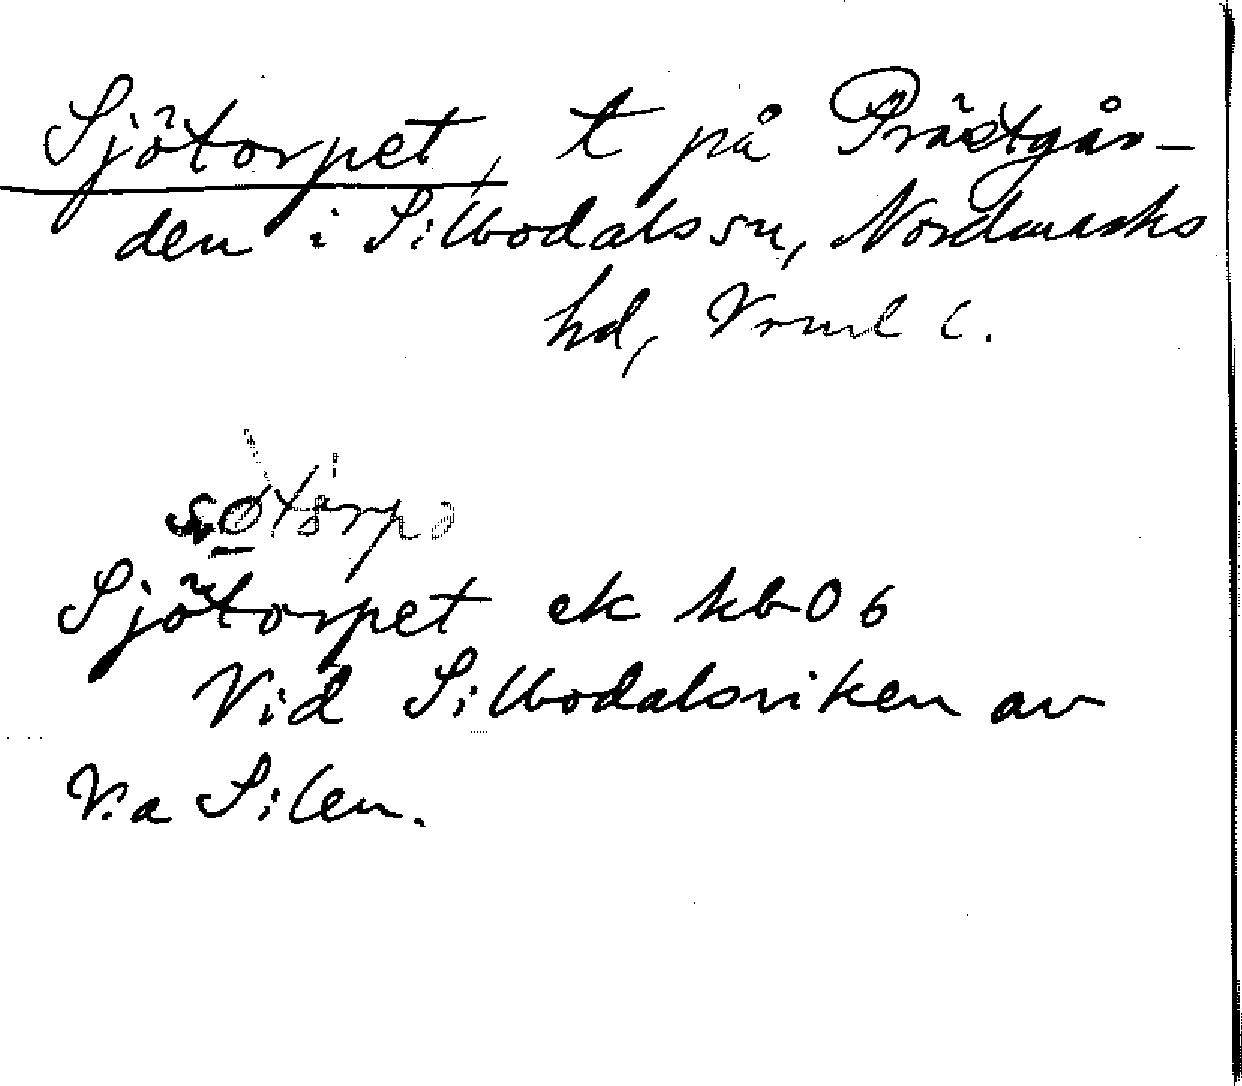 Sjötorpet, t på Prästgår-
den i Silbodals sn, Nordmarks
hd, Vrml l.
Sjötorpet ek kb 06
Vid Silbodalsviken av
V:a Silen.